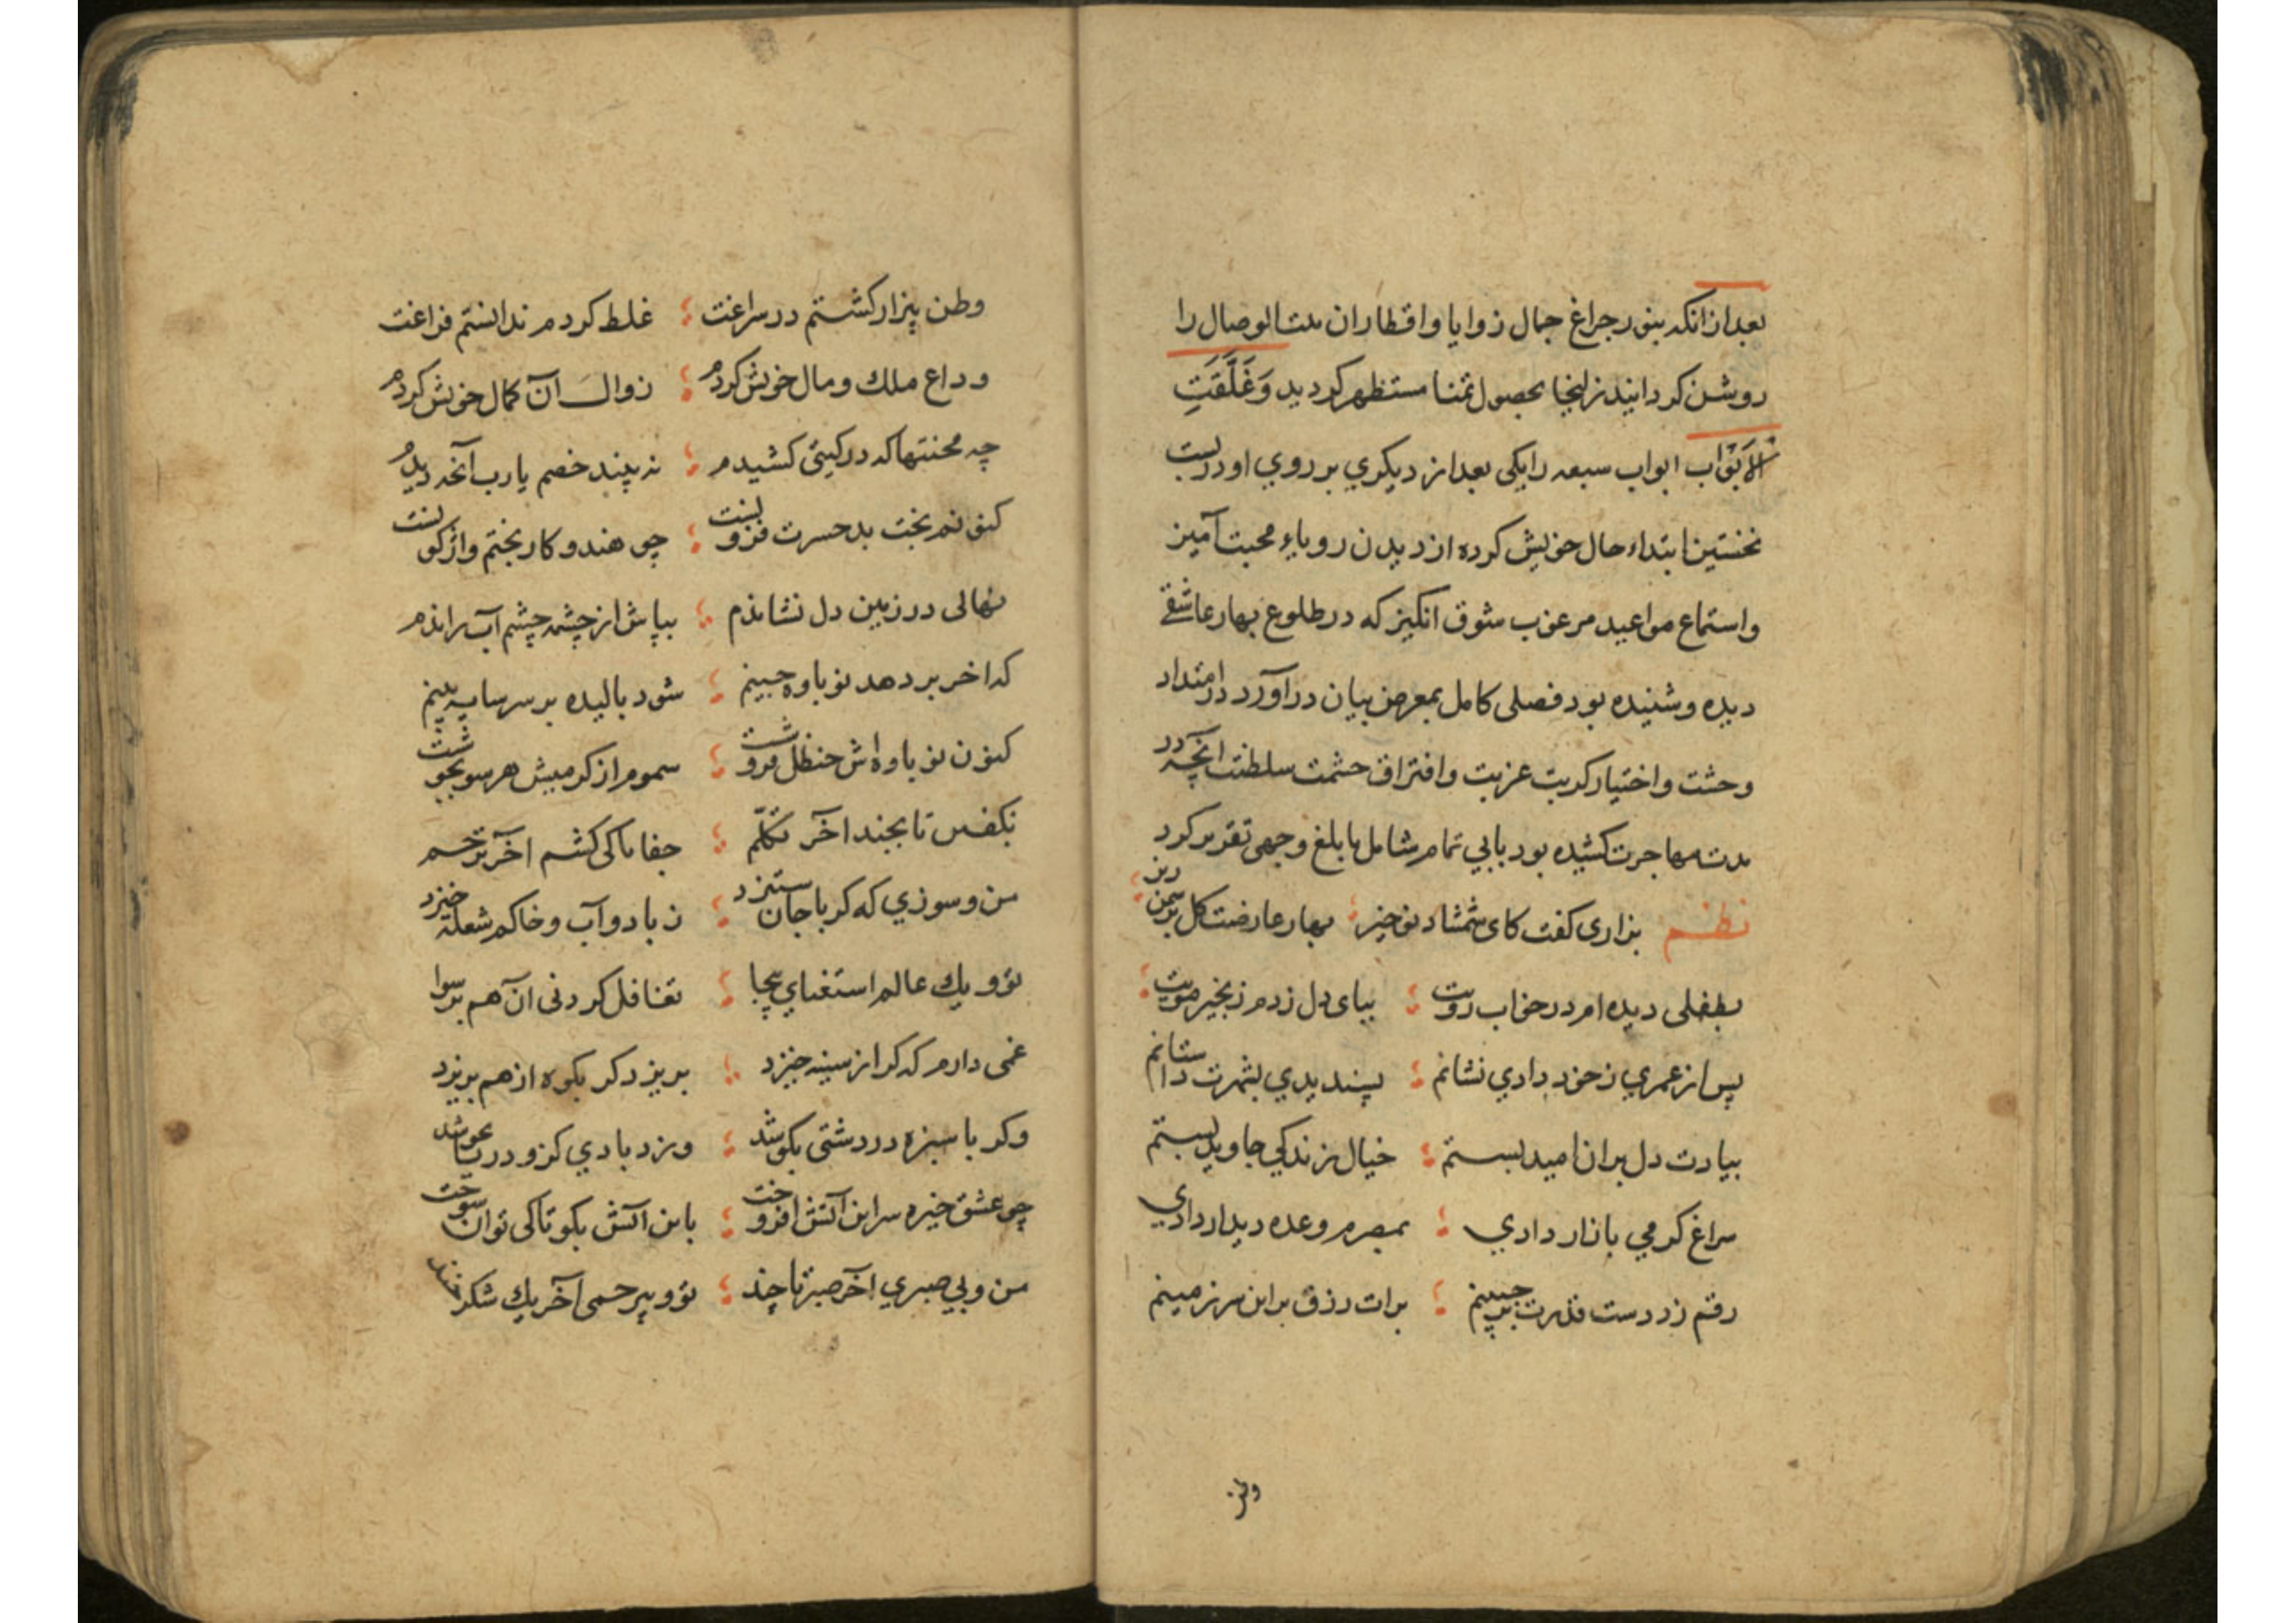 بعد از انکه بنور جراغ جمال زوایا و اقطار ان بیت الوصال را
روشن کردانید زلیخا بحصول تمنا مستظهر کردید وَغَلَّقَتِ
الاَبْوَاب ابواب سبعه را یکی بعد از دیکري بر روي او در بست
نخستین ابتداء حال خویش کرده از دیدن رویاء محبت آمیز
و استماع مواعید مرغوب شوق انکیز که در طلوع بهار عاشقے
دیده و شنیده بود فصلی کامل بمعرض بیان در آورد در امتداد
وحشت و اختیار کربت غربت و افتراق حشمت سلطنت آنچه در
مدت مهاجرت کشیده بود بابي تمام شامل بابلغ وجهی تقریر کرد
نظم بزاری کفت کای شمشاد نوخیز ؛ بهار عارضت کل بر سمن ریز
بطفلی دیده ام در خواب رویت ؛ بپای دل زدم زنجیر مویت
پس از عمري ز خود دادي نشانم ؛ پسندیدي بثمرت داستانم
بیادت دل بران امید بستم ؛ خیال زندکي جاوید بستم
سراغ کرمي بازار دادي ؛ بمصرم وعده دیدار دادي
رقم زد دست قدرت بر جبینم ؛ برات رزق بر این سرزمینم
وطن
وطن بیزار کشتم در سراغت ؛ غلط کردم ندانستم فراغت
وداع ملك و مال خویش کردم ؛ زوال آن کمال خویش کردم
چه محنتها که در کیتی کشیدم ؛ نه بیند خصم یا رب آنچه دیدم
کنونم بخت بد حسرت فزونست ؛ چو هندو کار بختم واژکونست
نهالی در زمین دل نشاندم ؛ بپاش از چشمه چشم آب راندم
که اخر بر دهد نوباوه چینم ؛ شود بالیده بر سر سایه بینم
کنون نوباوه اش حنظل فروشت ؛ سموم از کرمیش هر سو بجوشت
بکفس تا بچند آخر تکلّم ؛ جفا تا کی کشم آخر ترحم
من و سوزي که کر با جان ستیزد ؛ ز باد و آب و خاکم شعله خیزد
تو و یك عالم استغناي بیجا ؛ تغافل کردنی آن هم برسوا
غمی دارم که کر از سینه خیزد ؛ بریزد کر بکوه از هم بریزد
وکر با سبزه در دشتی بکوشد ؛ وزد بادي کزو دریا بجوشد
چو عشق خیره سر این آتش افروخت ؛ باین آتش بکو تا کی توان سوخت
من و بي صبري آخر صبر تا چند ؛ تو و بیرحمی آخر یك شکرخند